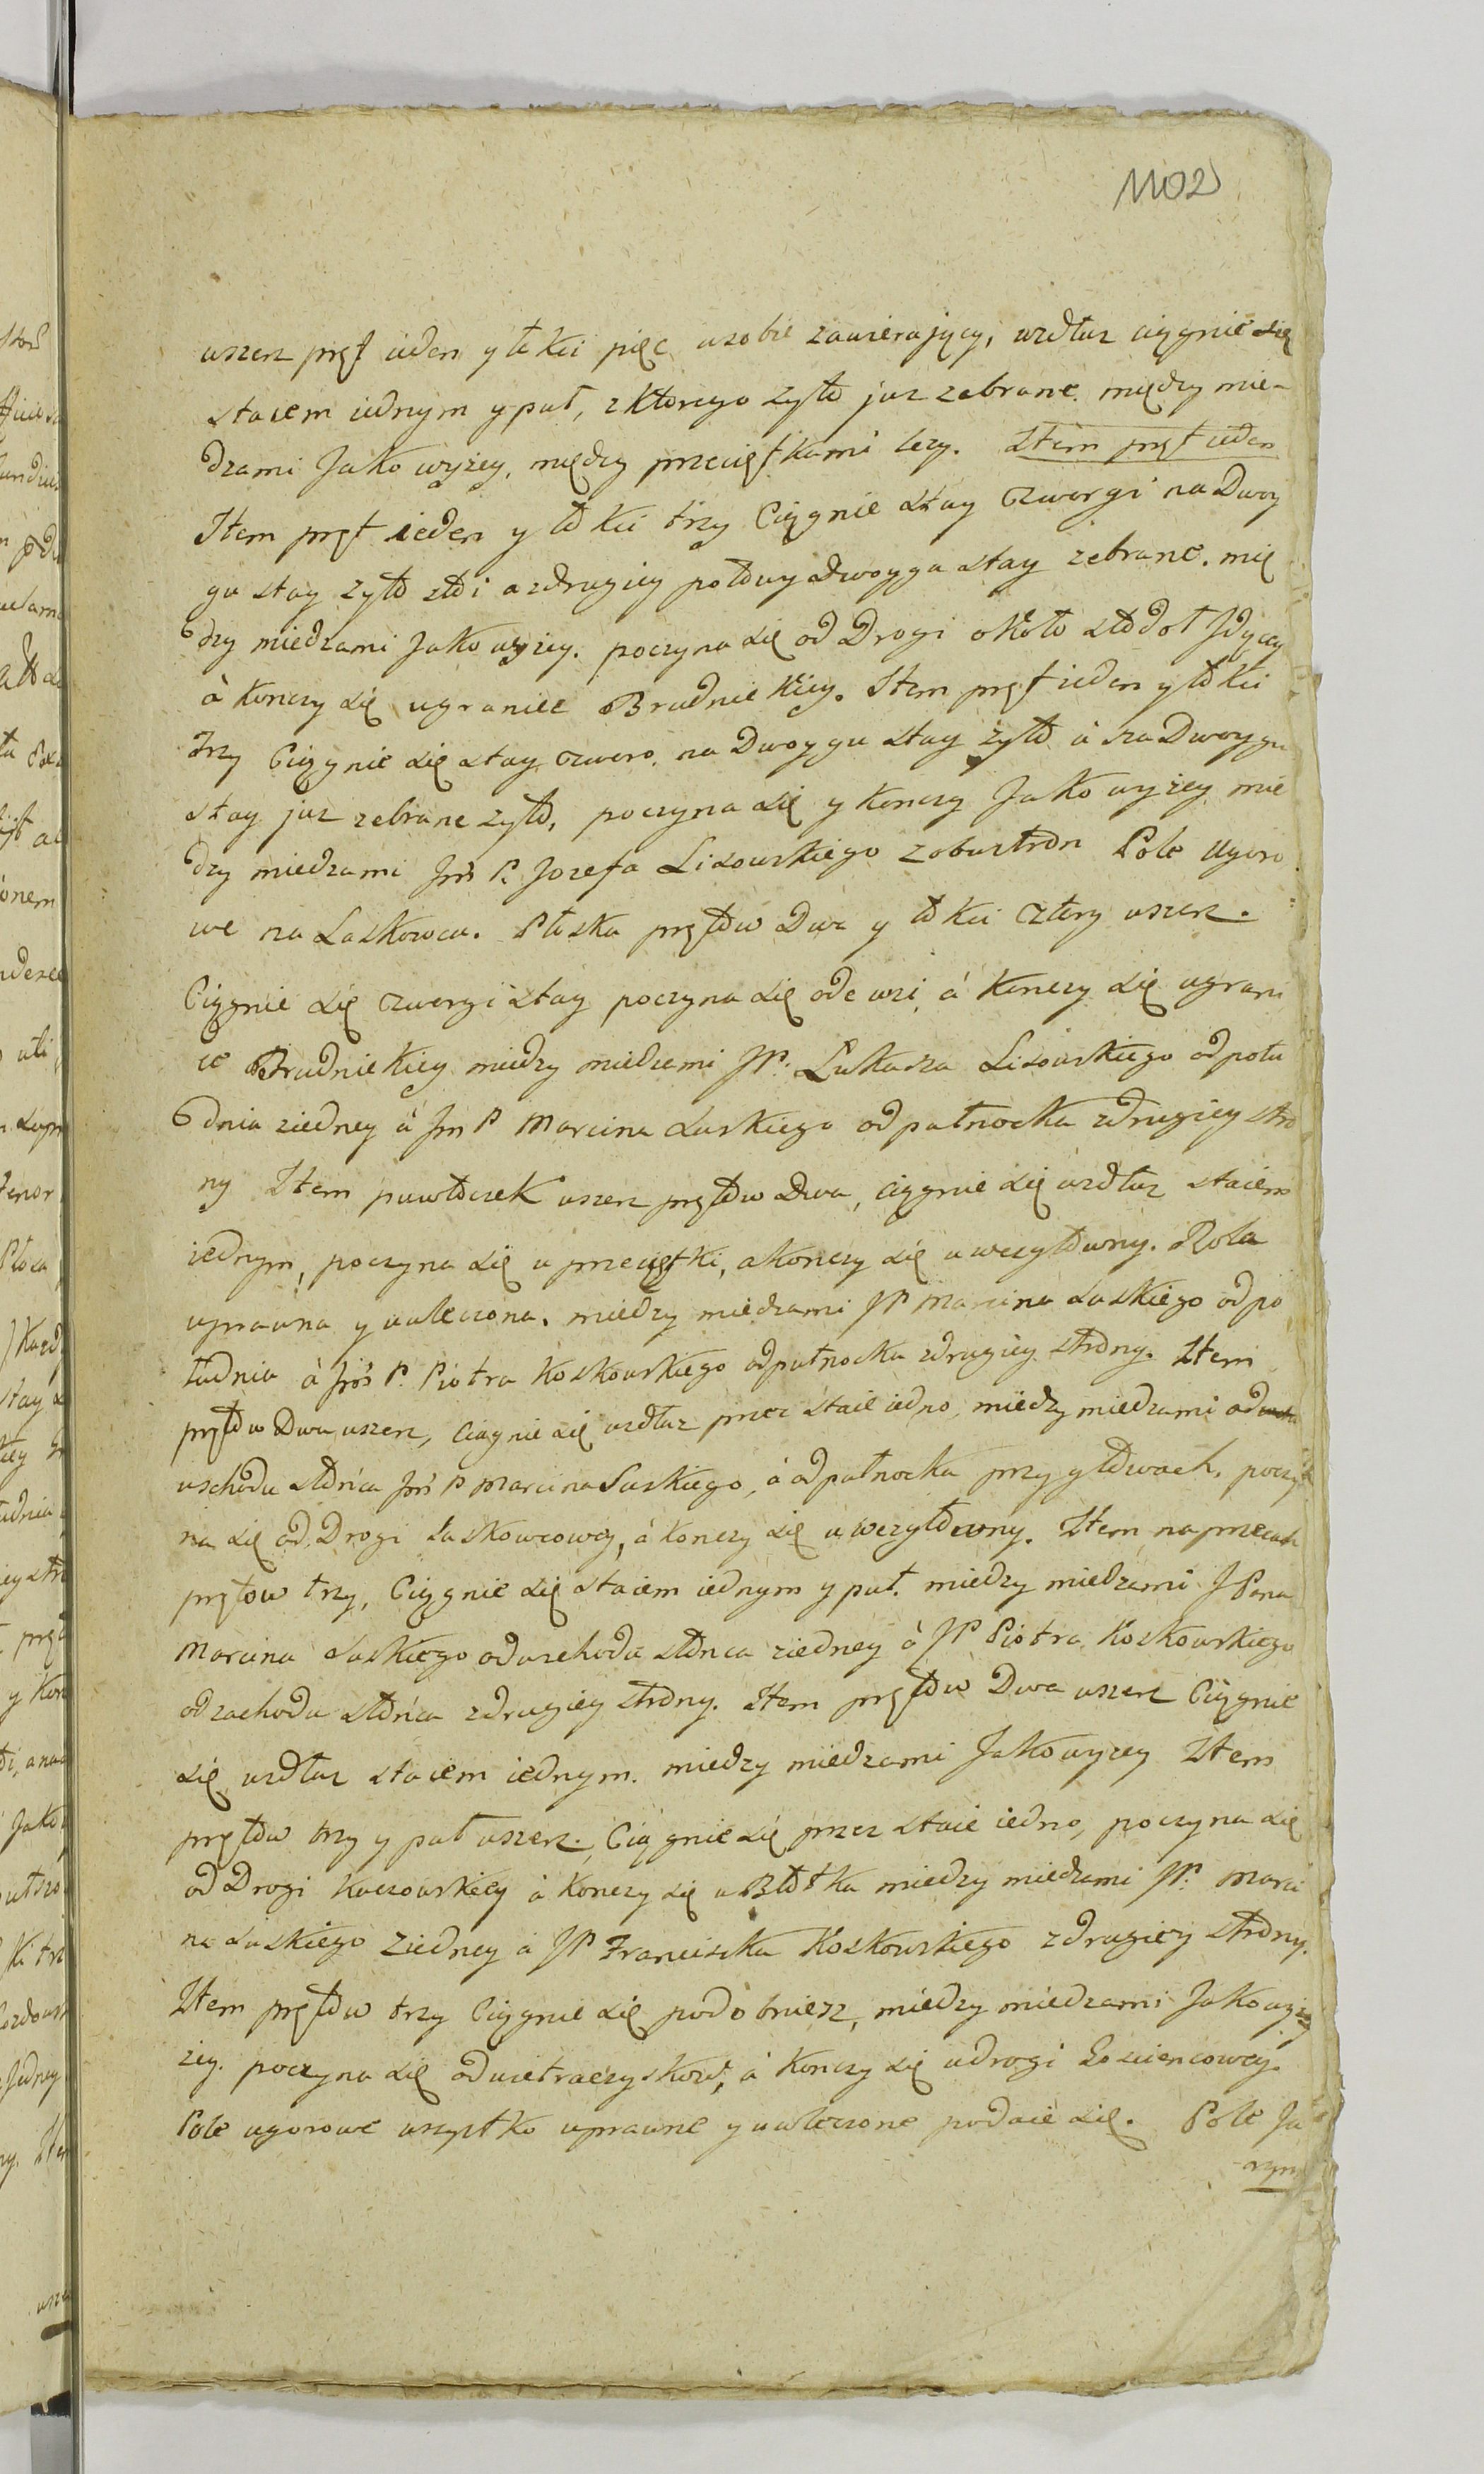 1102
wszerz pręt ieden y łokci pięc wsobie zawieraiący, wzdłuz ciągnie się
staiem iednym y puł, zktorego zyto juz zebrane. między mie-
dzami Jako wyżey, między przeciętkami lezy. Item pręt ieden
Item pręt ieden y łokci trzy Ciągnie stay czworgi na Dwoy
gu stay zyto stoi azdrugiey połowy dwoygu stay zebrane. mię
dzy miedzami Jako wyzey. poczyna się od Drogi około stodoł Idącey
à Konczy się ugranice Brudnickiey. Item pręt ieden y łokci
trzy Ciągnie się stay czworo. na Dwoygu stay żyto à na Dwoygu
stay juz zebrane zyto, poczyna się y konczy Jako wyżey mie
dzy miedzami Jmś P. Jozefa Lisowskiego zobustron Pole Ugoro
we na Laskowcu. Płoska prętow Dwa y łokci cztery wszerz.
Ciągnie się czworgi stay poczyna się ode wsi, á Konczy się ugrani
ce Brudnickiey miedzy miedzami JP. Łukasza Lisowskiego odpołu
dnia ziedney á Jm P Marcina Łuskiego od pułnocka zdrugiey stro
ny Item pawłoczek wszerz prętow Dwa, ciągnie się wzdłuz staiem
iednym, poczyna się u przeciętki, akonczy się uwezgłowny. Rola
uprawna y uwleczona. miedzy miedzami JP Marcina Łuskiego odpo
łudnia à Jmś P. Piotra Koskowskiego odpułnocka zdrugiey strony. Item
prętow Dwa wszerz, ciągnie się wzdłuz przez staie iedno, miedzy miedzami od
wschodu słońca Jmś P Marcina Łuskiego, á od pułnocka przy głowach. poczy
na się od Drogi Łaskowcowey, á konczy się u wezgłowny. Item na
prętow trzy, Ciągnie się staiem iednym y puł. miedzy miedzami JPana
Marcina Łuskiego odwschodu słonca ziedney à JP Piotra Koskowskiego
odzachodu słońca zdrugiey strony. Item prętow Dwa wszerz Ciągnie
się wzdłuz staiem iednym. miedzy miedzami Jako wyzey Item
prętow trzy y puł wszerz. Ciągnie się przez staie iedno, poczyna się
od Drogi Kaczowskiey à konczy się u Błotka miedzy miedzami JP. Marci
na Łuskiego Ziedney à JP Franciszka Koskowskiego zdrugiey strony.
Item prętow trzy Ciągnie się podobniesz, miedzy miedzami Jako wyz
zey. poczyna się od, à Konczy się udrogi Goscincowey.
Pole ugorowe wszystko uprawne y uwleczone podaie się. Pole Ja
rzyn